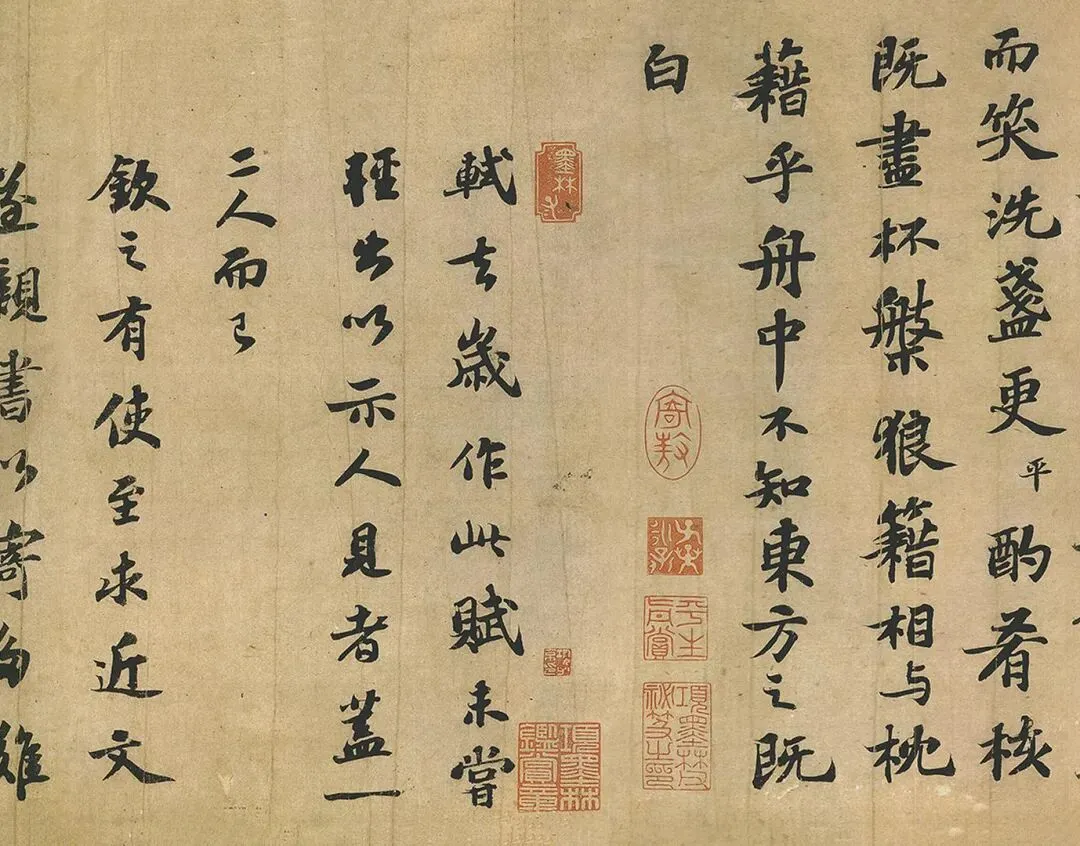 而笑洗盏更平酌肴核
既盡杯槃狼籍相与枕
藉乎舟中不知東方之既
白
軾去歲作此賦未嘗
輕出以示人見者蓋一
二人而已
欽之有使至求近文
遂親書以寄多難
墨林
平生真賞
項墨林鑑賞章